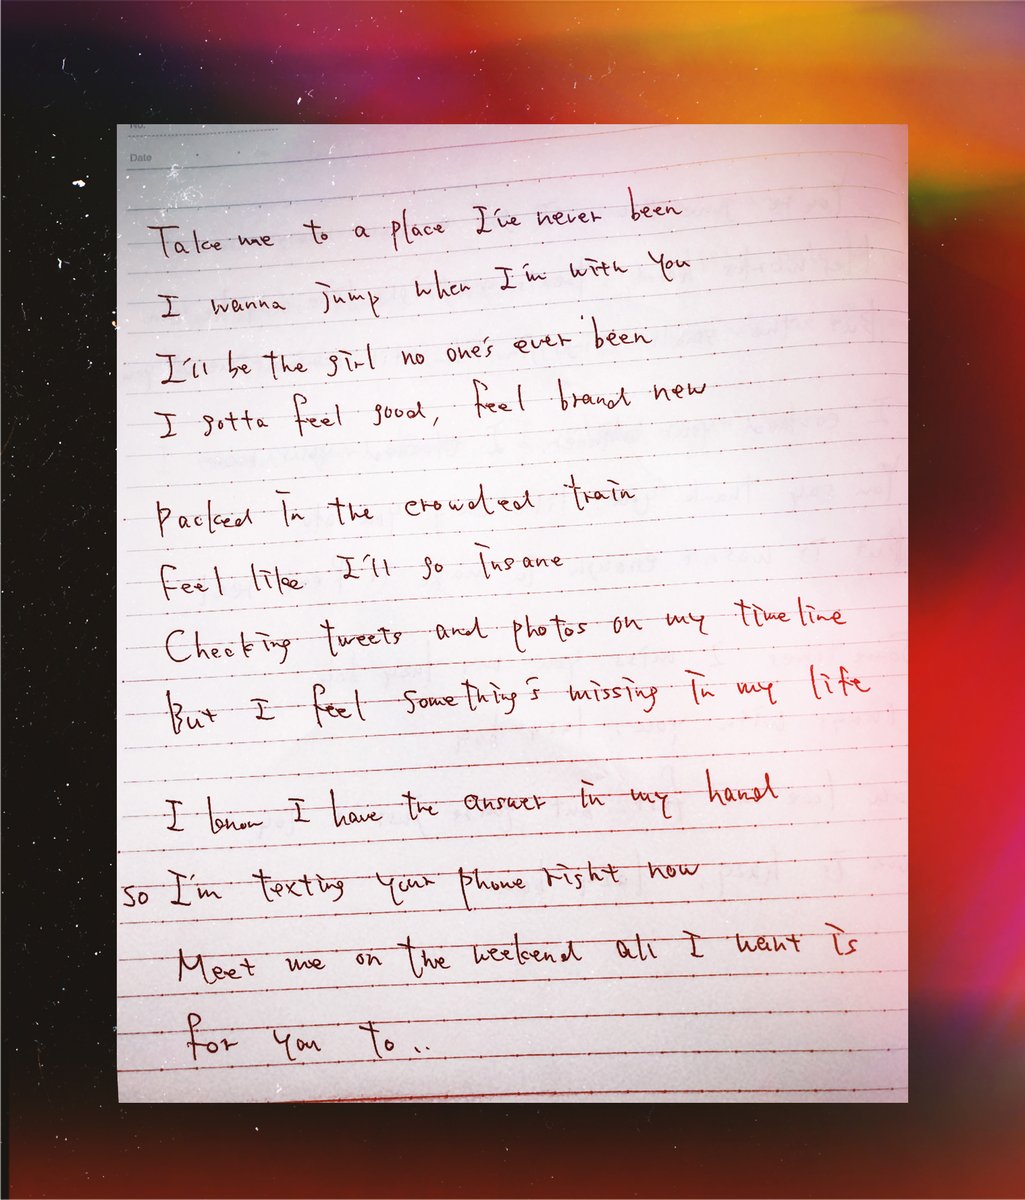 No.
Date
Take me to a place I've never been
I wanna jump when I'm with you
I'll be the girl no one's ever been
I gotta feel good, feel brand new
packed in the crowded train
feel like I'll go insane
Checking tweets and photos on my timeline
But I feel something's missing in my life
I know I have the answer in my hand
so I'm texting your phone right now
Meet me on the weekend all I want is
for you to..